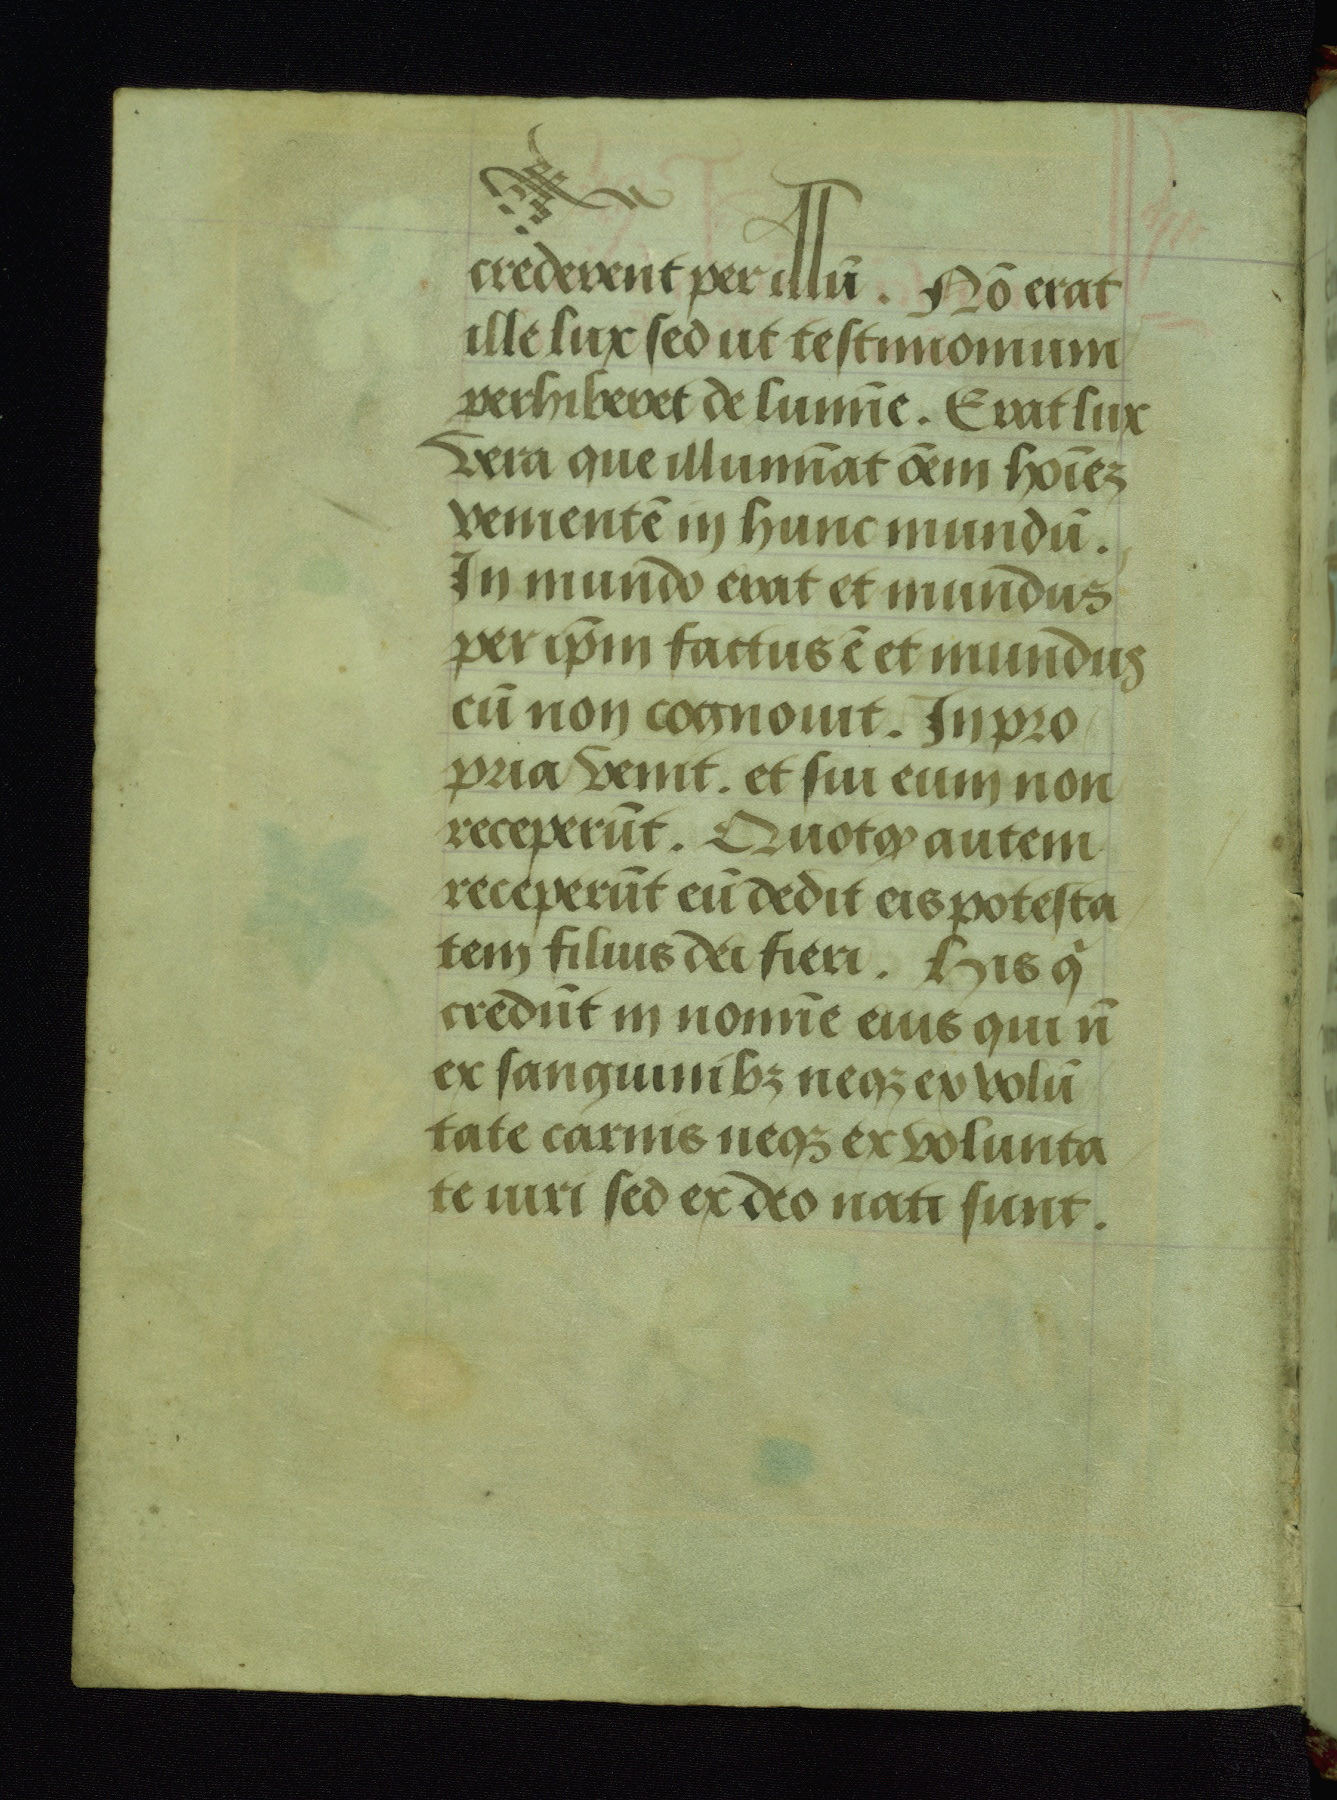 crederent per illū. Nō erat
ille lux sed ut testimonium
perhiberet de lumīe. Erat lux
vera que illumīat oēm hoīeꝫ
venientē in hunc mundū.
In mundo erat et mundus
per ip̄m factus ē et mundus
eū non cognouit. In pro
pria venit. et sui eum non
receperūt. Quotqꝫ autem
receperūt eū dedit eis potesta
tem filius dei fieri. His qͥ
credūt in nomīe eius qui n̄
ex sanguinibꝫ neqꝫ ex volū
tate carnis neqꝫ ex volunta
te uiri sed ex deo nati sunt.